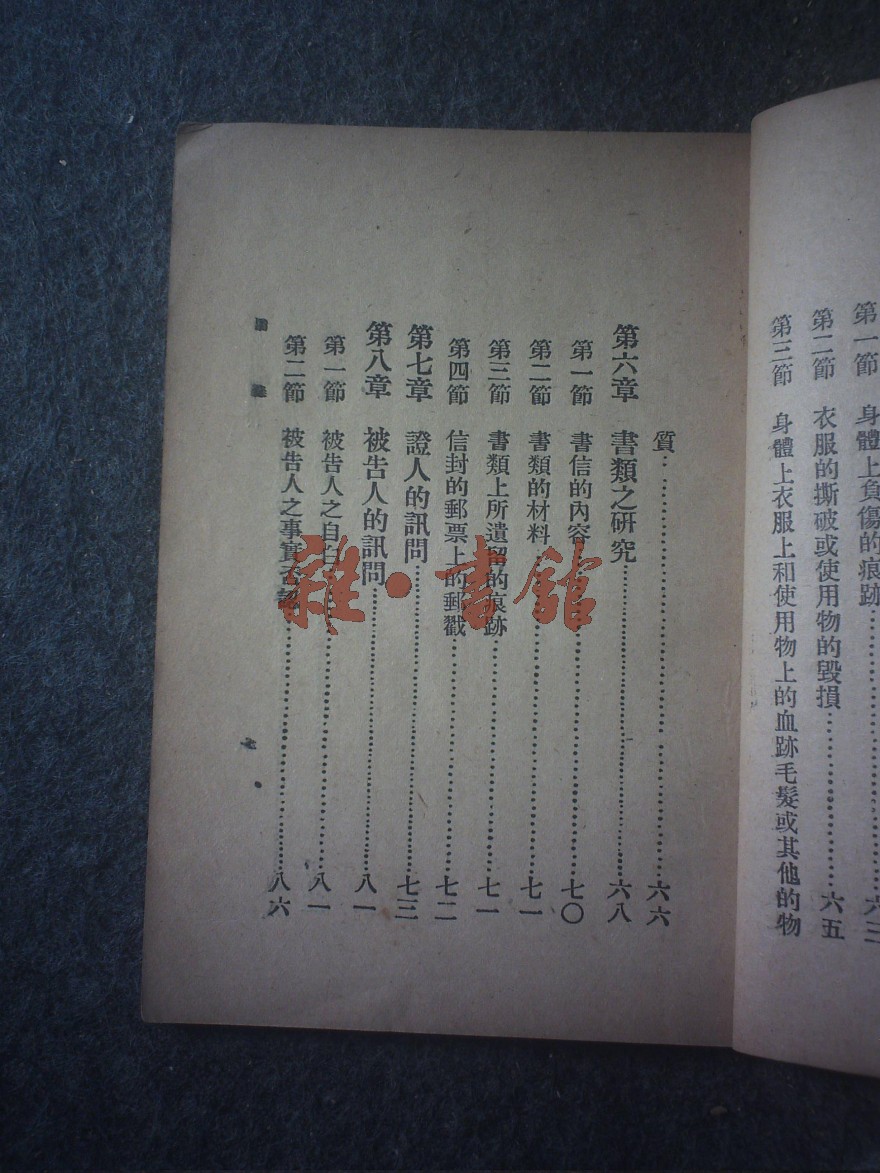 第一節 身體上負傷的痕跡
第二節 衣服的撕破或使用物的毀損……六五
第三節 身體上衣服上和使用物上的血跡毛髮或其他的物
質……六六
第六章 書類之研究……六八
第一節 書信的內容……七〇
第二節 書類的材料……七一
第三節 書類上所遺留的痕跡……七一
第四節 信封的郵票上的郵戳……七二
第七章 證人的訊問……七三
第八章 被告人的訊問……八一
第一節 被告人之自白……八一
第二節 被告人之事實否認……八六
七
雜·書館